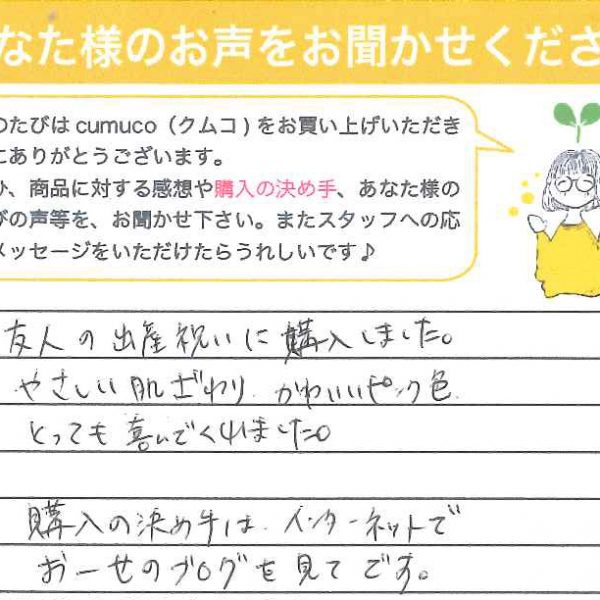 なた様のお声をお聞かせくださ
のたびはcumuco（クムコ）をお買い上げいただき
にありがとうございます。
ひ、商品に対する感想や購入の決め手、あなた様の
びの声等を、お聞かせ下さい。またスタッフへの応
メッセージをいただけたらうれしいです♪
友人の出産祝いに購入しました。
やさしい肌ざわり、かわいいピンク色
とっても喜んでくれました。
購入の決め手は、インターネットで
お一せのブログを見てです。